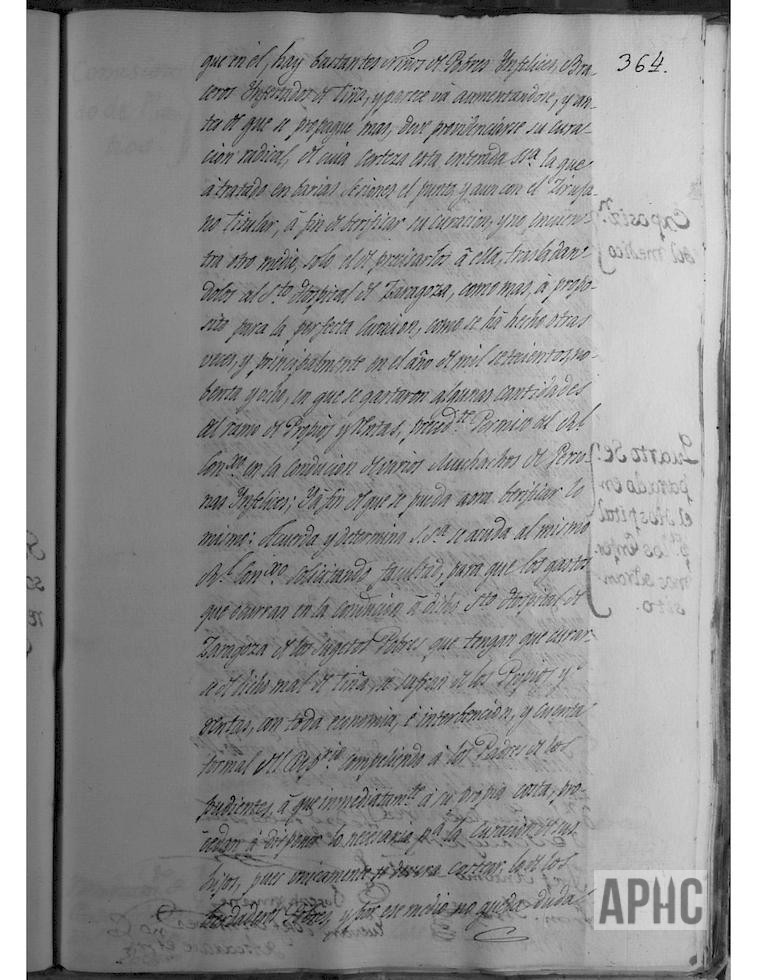 364.
que en el, hay bastantes niños de Pobres Infelices, Bra-
ceros Infestados de tiña, y parece va aumentandose, y an-
tes de que se propague mas, deve providenciarse su cura-
cion radical, de cuia certeza esta enterada S.S.ª la que
à tratado en barias Seciones el punto, y aun con el Ziruja-
no titular, â fin de berificar su curacion, y no encuen-
tra otro medio, solo el de precisarlos â ella, trasladan-
dolos al S.to Hospital de Zaragoza, como mas, à propo-
sito para la perfecta Curacion, como se hà hecho otras
veces, y principalmente en el año de mil setecientos, no-
benta y ocho, en que se gastaron algunas cantidades
del ramo de Propios y Rentas, preced.te Permiso del Rl.
Con.xo en la conducion de varios Muchachos de Perso-
nas Infelices; Y à fin de que se pueda aora berificar lo
mismo: Acuerda y determina S.S.ª se acuda al mismo
Rl. Con.xo solicitando facultad, para que los gastos
que ocurran en la conducion à dicho S.to Hospital de
Zaragoza de los Sugetos Pobres que tengan que curar-
se de dicho mal de tiña, se sufran de los Propios y
Rentas, con toda economia, è interbencion, y cuenta
formal del compeliendo â los Padres de los
pudientes, â que inmediatam.te a su propia costa, pro-
cedan à disponer lo necesario p.ª la curacion de sus
hijos, pues unicamente se costear, la de los
berdaderos Pobres, y por ese medio no queda duda
APHC